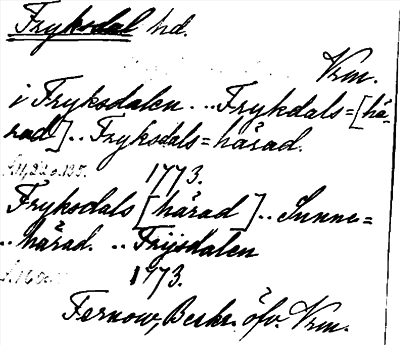 Fryksdal hd.
Vrm.
i Fryksdalen .. Frykdals=[hä-
rad] .. Fryksdals=härad.
1773.
Fryksdals [härad] .. Sunne=
.. härad. .. Frijsdalen
1773.
Fernow, Beskr. öfv. Vrm.